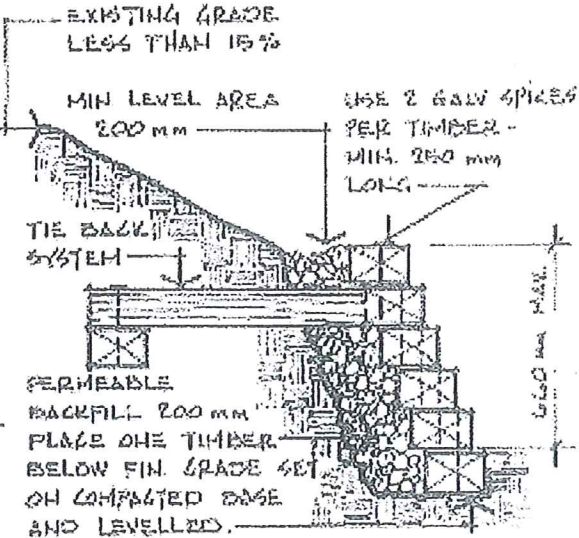 EXISTING GRADE
LESS THAN 15%
MIN LEVEL AREA
200 mm
USE 2 GALV SPIKES
PER TIMBER -
MIN. 250 mm
LONG
TIE BACK
SYSTEM
660 mm MAX.
PERMEABLE
BACKFILL 200 mm
PLACE ONE TIMBER
BELOW FIN. GRADE SET
ON COMPACTED BASE
AND LEVELLED.